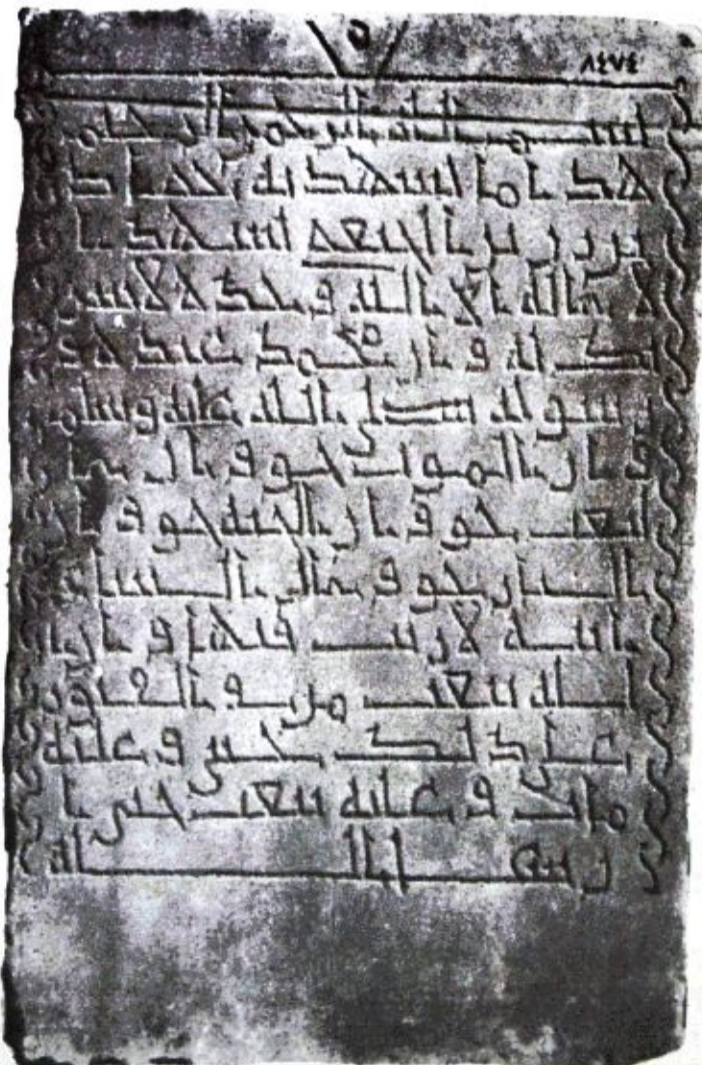 ٨٤٧٤
بسم الله الرحمن الرحيم
هذا ما يشهد به
بن بن يشهد ا
لا اله الا الله وحده لا شر
يك له و ان محمد عبده و
رسوله صلى الله عليه وسلم
و ان الموت حق و ان ا
لبعث حق و ان الجنة حق و ان
النار حق و ان الساعة
اتية لا ريب فيها و ان ا
لله يبعث من في القبور
على ذلك حيي و عليه
مات و عليه يبعث حي ا
ن شا الله